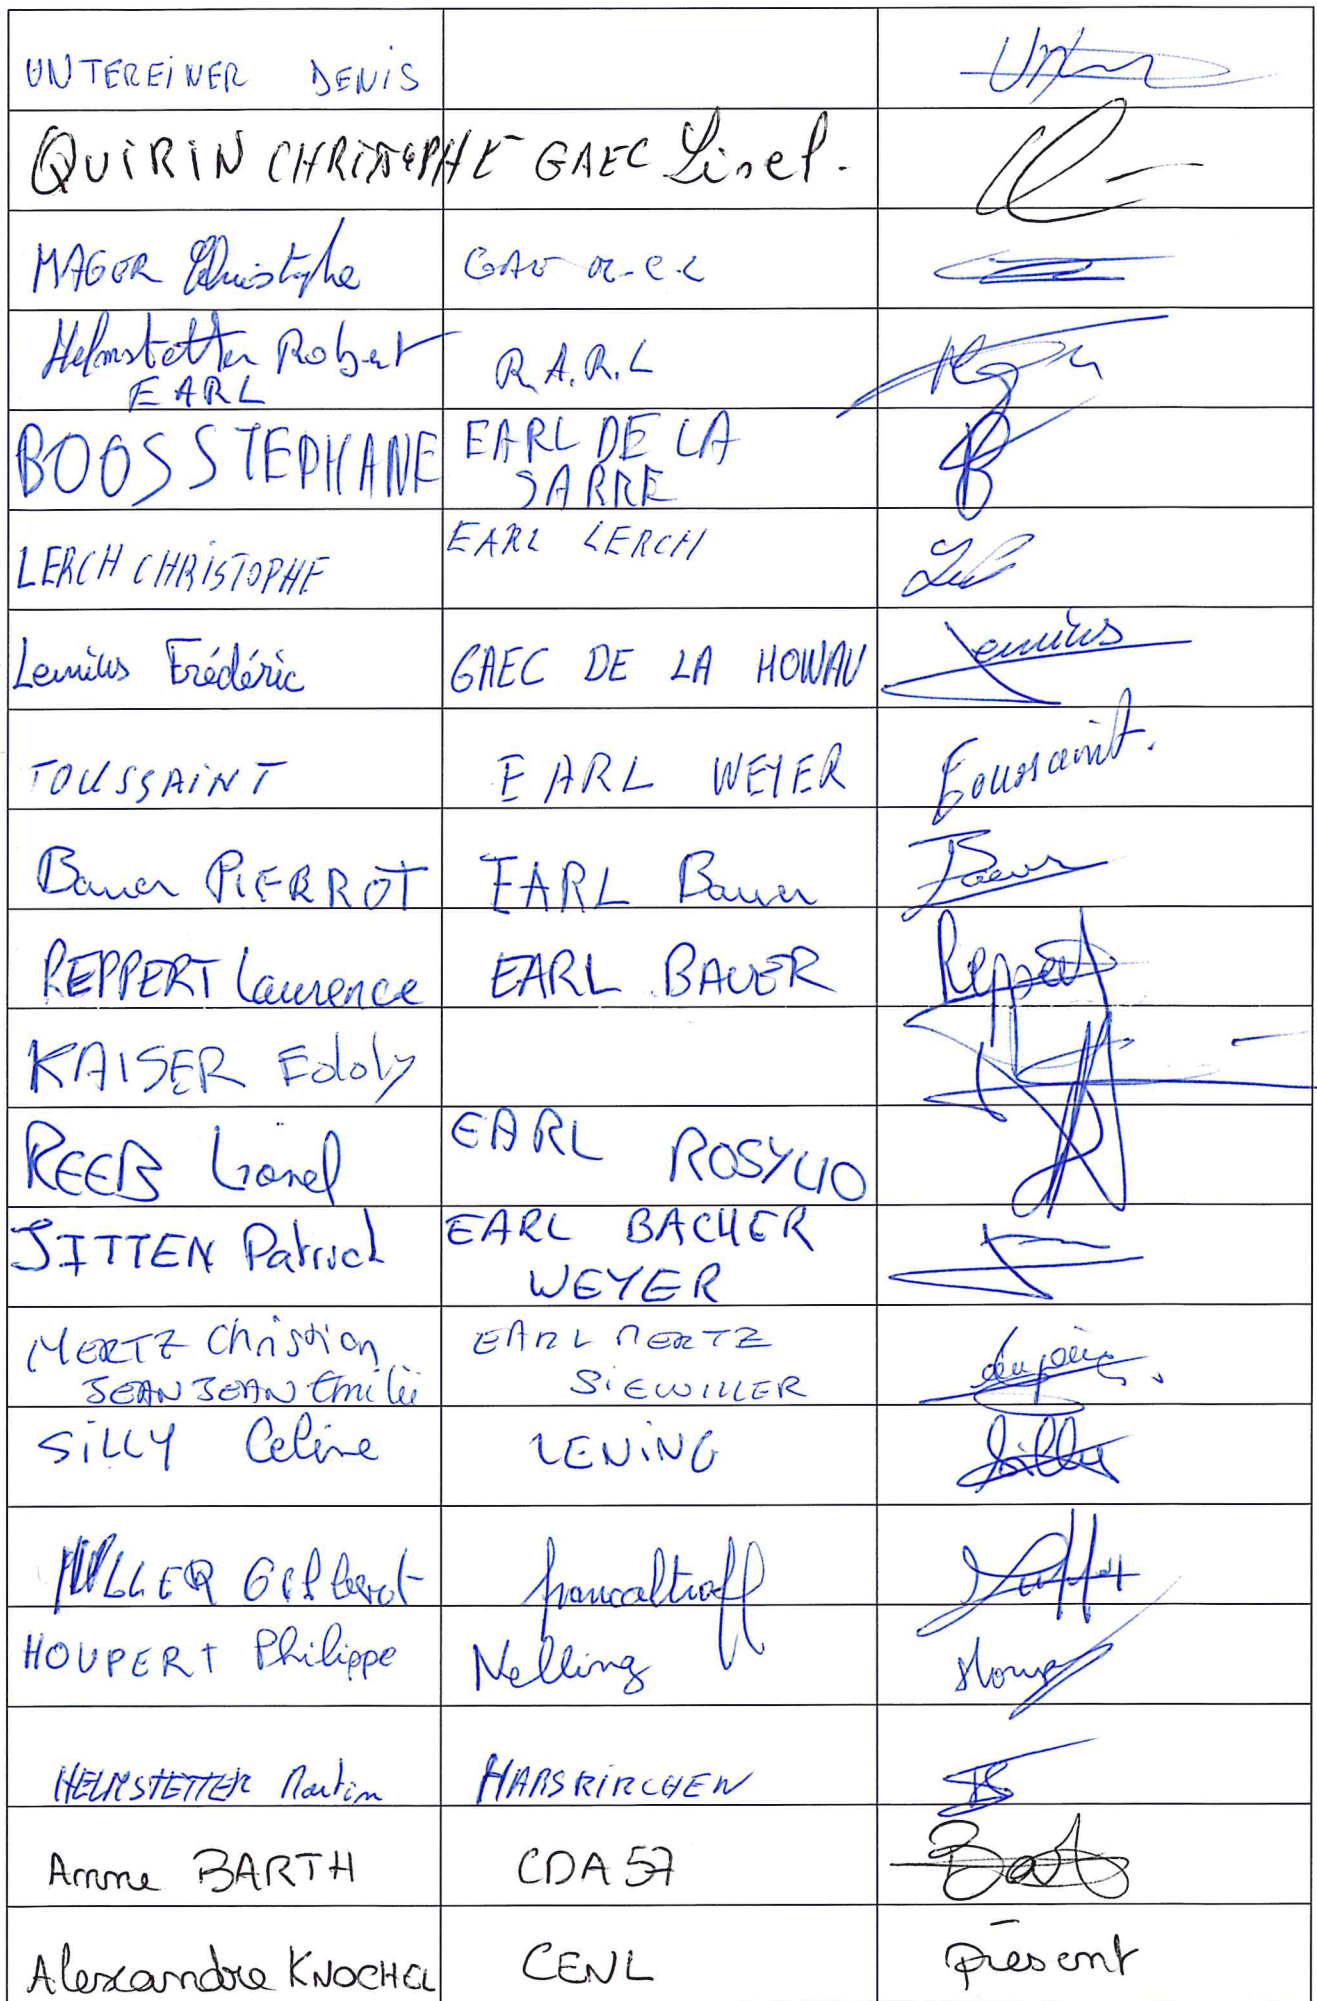 UNTEREINER DENIS
QUIRIN CHRISTOPHE GAEC Lisel.
MAGER Christophe
Helmstetter Robert R.A.R.L
EARL
BOOS STEPHANE EARL DE LA
SARRE
LERCH CHRISTOPHE EARL LERCH
Lemius Frédéric GAEC DE LA HOWAU Lemius
TOUSSAINT EARL WEYER Toussaint.
Bauer PIERROT EARL Bauer Bauer
REPPERT Laurence EARL BAUER Reppert
KAISER Eddy
REEB Lionel EARL ROSYLIO
JITTEN Patrick EARL BACHER
WEYER
MERTZ Christian EARL MERTZ
JEANJEAN Emilie SIEWILLER
SILLY Celine LENING Silly
MULLER Gilbert francaltroff
HOUPERT Philippe Nelling
HELMSTETTER Martin HARSKIRCHEN
Anne BARTH CDA 57
Alexandre KNOCHEL CENL présent